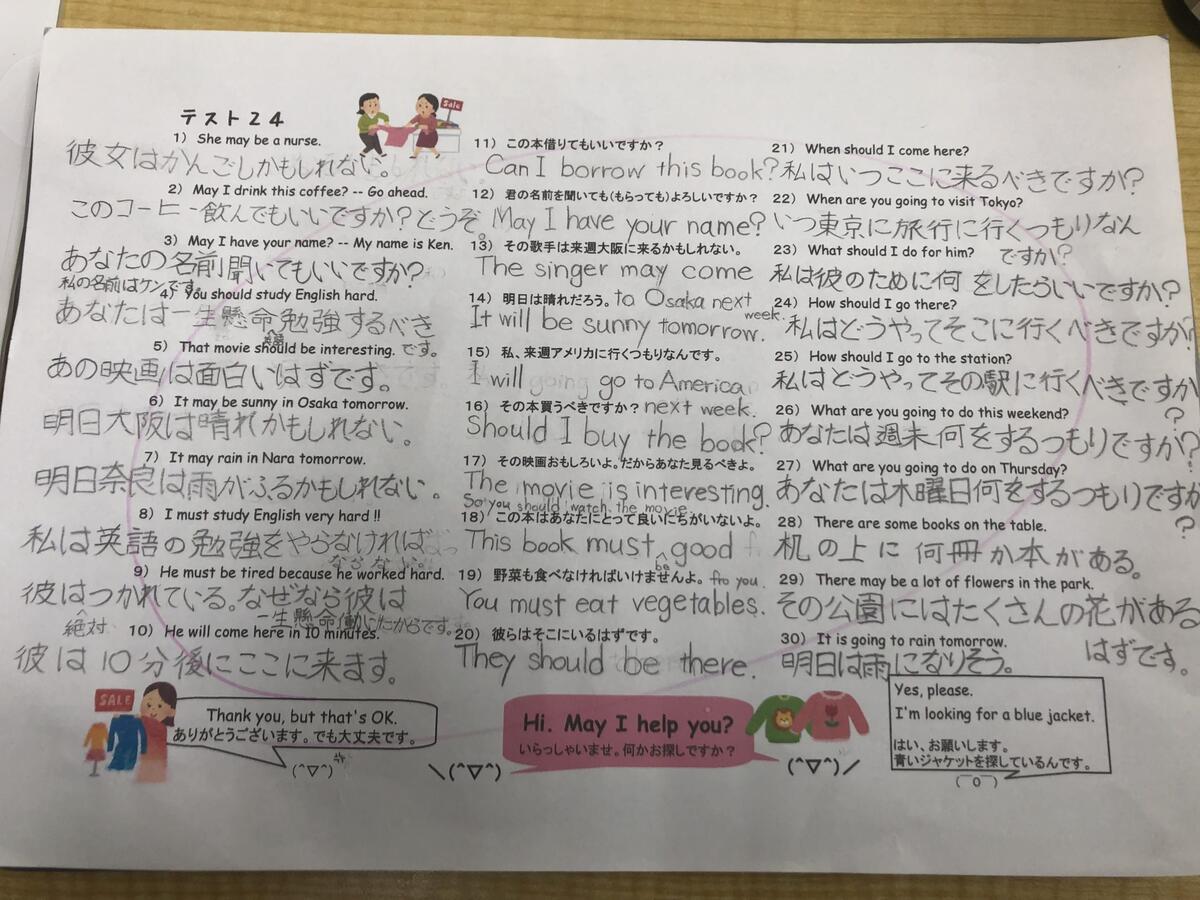 テスト24
1) She may be a nurse.
彼女はかんごしかもしれない。
2) May I drink this coffee? -- Go ahead.
このコーヒー飲んでもいいですか?どうぞ。
3) May I have your name? -- My name is Ken.
あなたの名前聞いてもいいですか?
私の名前はケンです。
4) You should study English hard.
あなたは一生懸命勉強するべき
英語
です。
5) That movie should be interesting.
あの映画は面白いはずです。
6) It may be sunny in Osaka tomorrow.
明日大阪は晴れかもしれない。
7) It may rain in Nara tomorrow.
明日奈良は雨がふるかもしれない。
8) I must study English very hard !!
私は英語の勉強をやらなければ
ならない。
9) He must be tired because he worked hard.
彼はつかれている。なぜなら彼は
一生懸命働いたからです。
10) He will come here in 10 minutes.
絶対
彼は10分後にここに来ます。
11) この本借りてもいいですか?
Can I borrow this book?
12) 君の名前を聞いても(もらっても)よろしいですか?
May I have your name?
13) その歌手は来週大阪に来るかもしれない。
The singer may come
to Osaka next
week.
14) 明日は晴れだろう。
It will be sunny tomorrow.
15) 私、来週アメリカに行くつもりなんです。
I will go to American
next week.
16) その本買うべきですか?
Should I buy the book?
17) その映画おもしろいよ。だからあなた見るべきよ。
The movie is interesting.
So you should watch the movie.
18) この本はあなたにとって良いにちがいないよ。
This book must be good
fro you.
19) 野菜も食べなければいけませんよ。
You must eat vegetables.
20) 彼らはそこにいるはずです。
They should be there.
21) When should I come here?
私はいつここに来るべきですか?
22) When are you going to visit Tokyo?
いつ東京に旅行に行くつもりなん
ですか?
23) What should I do for him?
私は彼のために何をしたらいいですか?
24) How should I go there?
私はどうやってそこに行くべきですか?
25) How should I go to the station?
私はどうやってその駅に行くべきですか
?
26) What are you going to do this weekend?
あなたは週末何をするつもりですか?
27) What are you going to do on Thursday?
あなたは木曜日何をするつもりですか
?
28) There are some books on the table.
机の上に何冊か本がある。
29) There may be a lot of flowers in the park.
その公園にはたくさんの花がある
はずです。
30) It is going to rain tomorrow.
明日は雨になりそう。
SALE
Thank you, but that's OK.
ありがとうございます。でも大丈夫です。
(^▽^)
\(^▽^)
Hi. May I help you?
いらっしゃいませ。何かお探しですか?
(^▽^)/
Yes, please.
I'm looking for a blue jacket.
はい、お願いします。
青いジャケットを探しているんです。
Sale